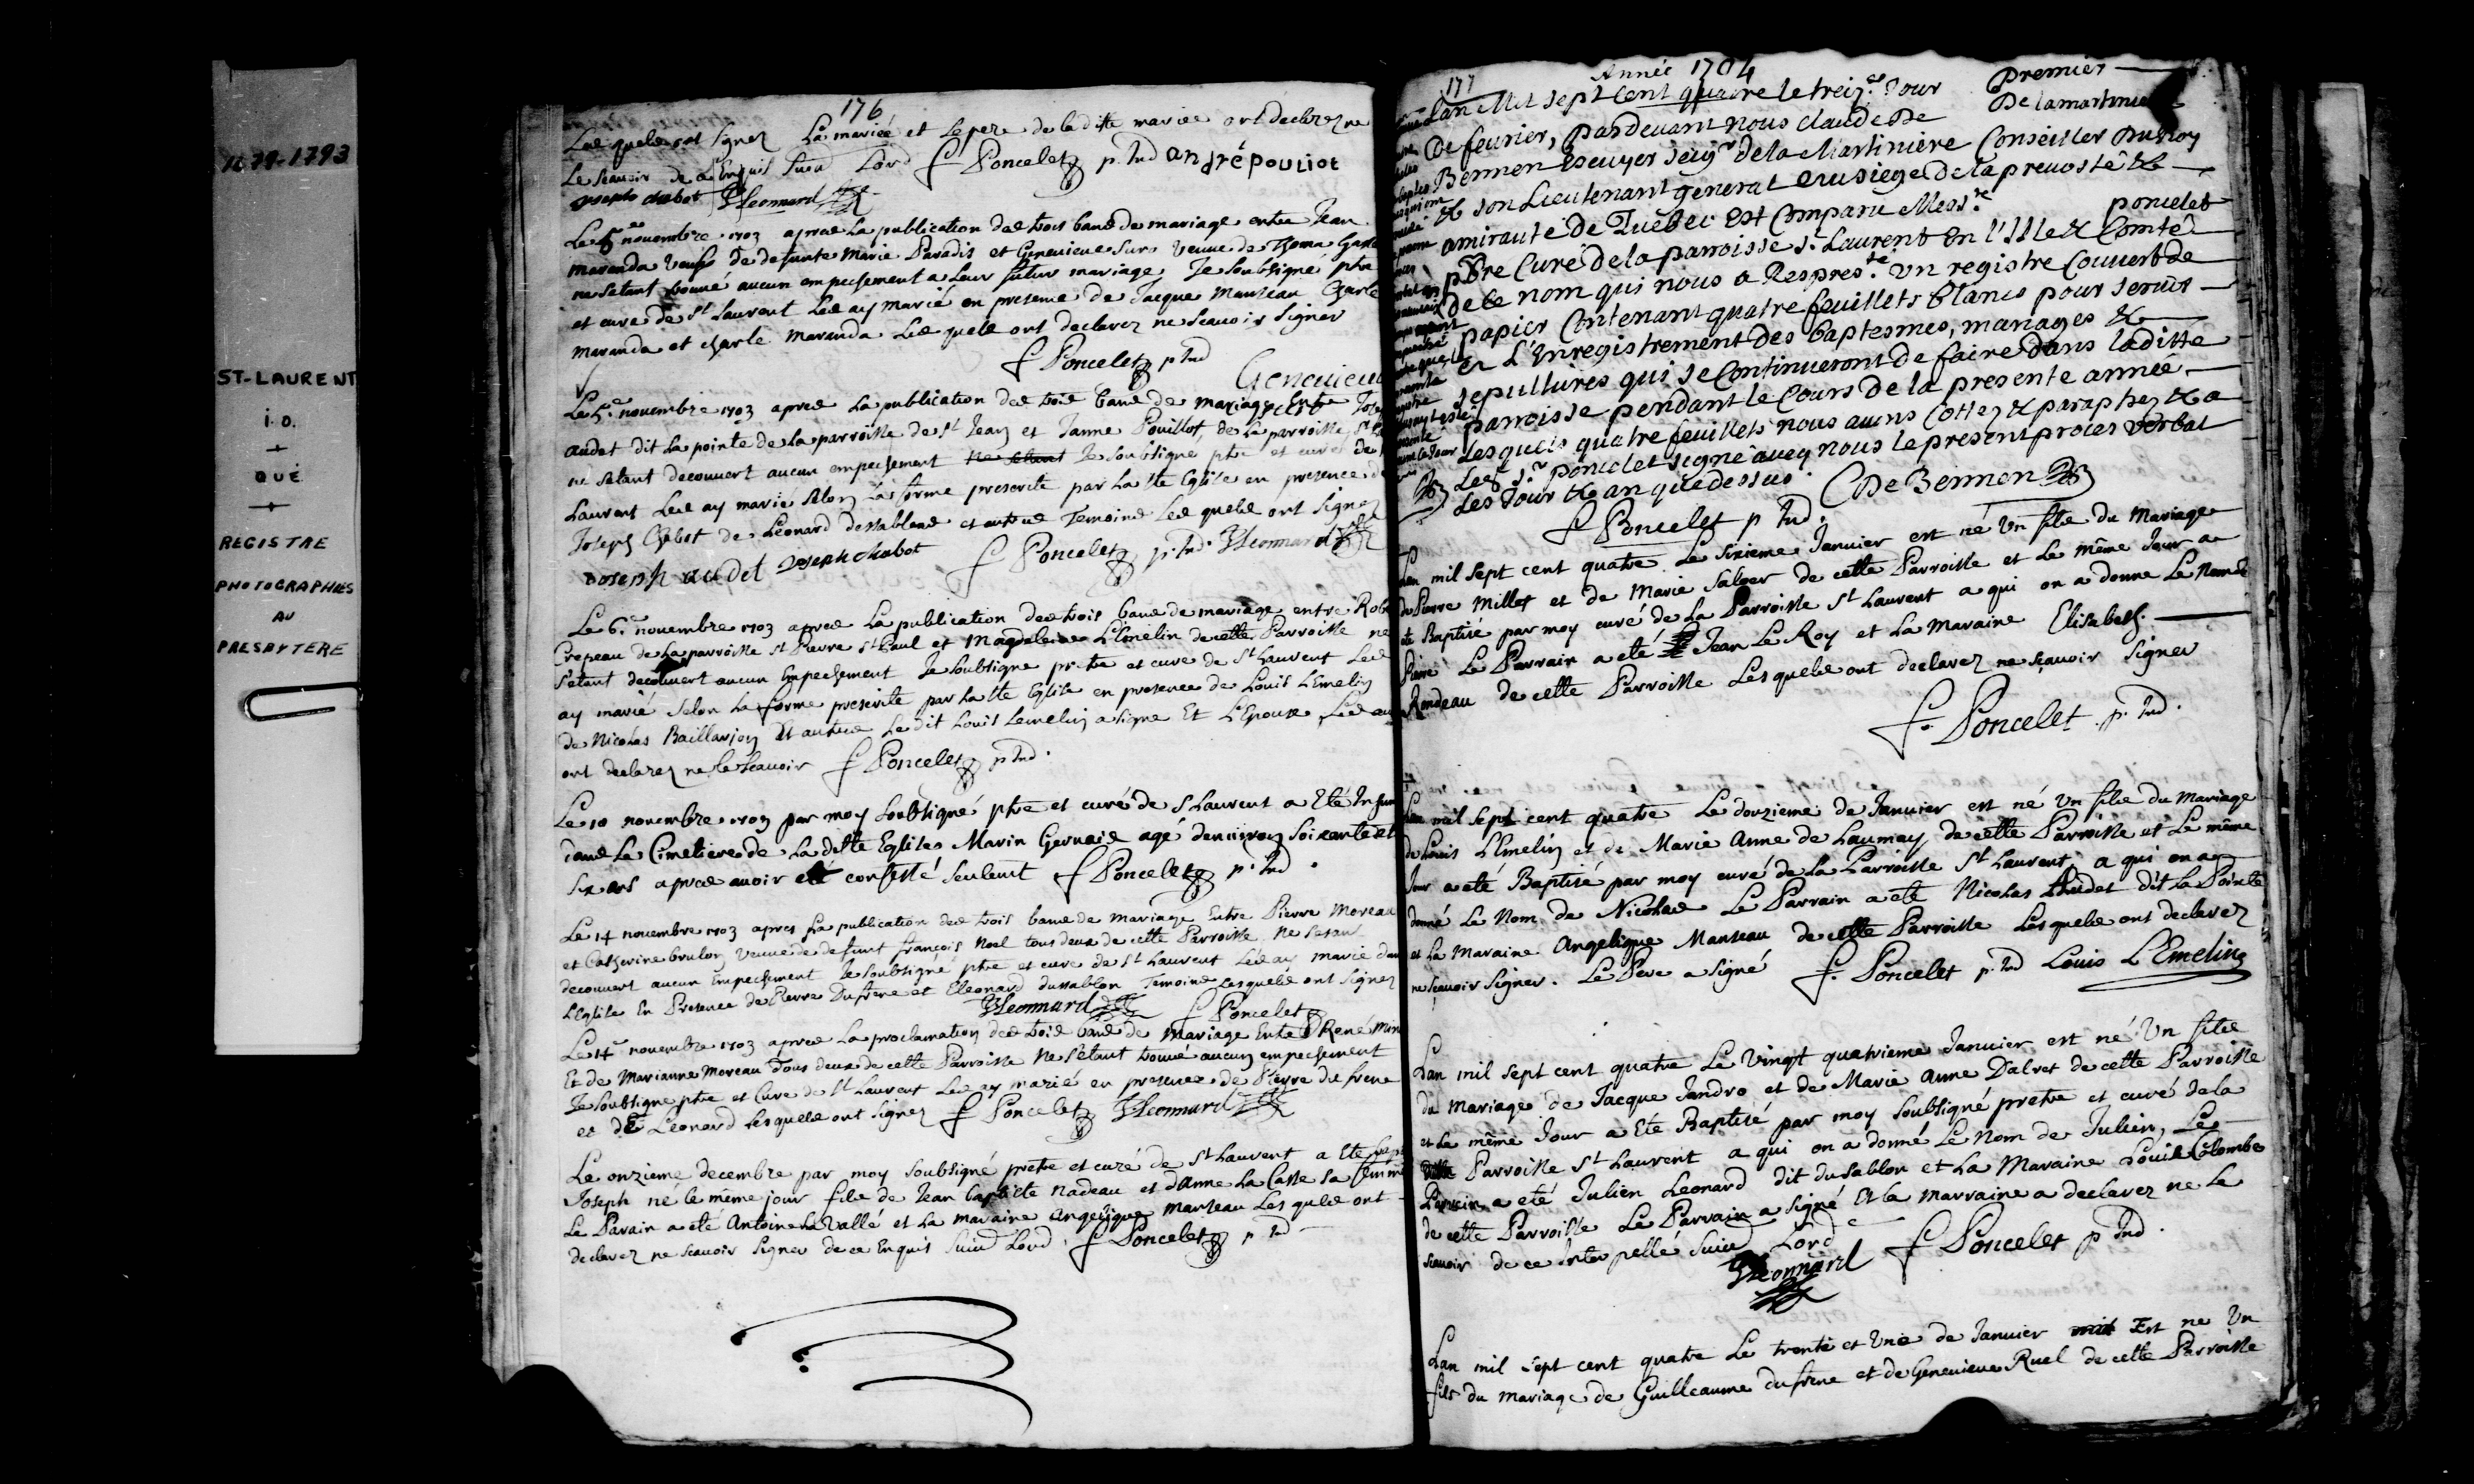 1679-1793
ST-LAURENT
i. O.
+
QUÉ
+
REGISTRE
PHOTOGRAPHIES
AU
PRESBYTERE
176
Les quels ont signez La mariée et Le pere de la ditte mariee ont declarez ne
Le scauoir de ce Enquis suiu Lord f Poncelet p. Ind andré pouliot
Joseph chabot JLeonnard
Le 5e nouembre 1703 apres La publication des trois bans de mariage entre Jean
maranda veuf de defunte Marie Paradis et Geneuieue Suro veuue de Thoma
ne setant trouué aucun empechement a Leur futur mariage Je soubsigné ptre
et cure de St Laurent Les ay marié en presence de Jacque Manseau Charle
Maranda et charle Maranda Les quels ont declarez ne scauoir signer
f Poncelet p Ind
Geneuieue
Le 5e nouembre 1703 apres La publication des trois bans de mariage Entre
audet dit La pointe de la parroisse de St Jean et Janne Pouillot, de La parroisse St
ne setant decouuert aucun empechement ne setant Je soubsigne ptre et curé de
Laurent Les ay marie selon La forme prescrite par La Ste Eglise en presence de
Joseph Chabot de Leonard dessablons et autres Temoins Les quels ont signez
Joseph audet Joseph chabot f Poncelet p. Ind. JLeonnard
Le 6e nouembre 1703 apres La publication des trois bans de mariage entre
Crepeau de La parroisse St Pierre St Paul et Magdeleine L'Emelin de cette Parroisse ne
s'etant decouuert aucun Empechement Je soubsigne pretre et cure de St Laurent Les
ay marié selon La forme prescrite par La Ste Eglise en presence de Louis L'Emelin
de Nicolas Baillarjon Et autres Le dit Louis Lemelin a signe Et L'Epouse, Les au
ont declarez ne le scauoir f Poncelet p Ind.
Le 10 nouembre 1703 par moy soubsigné ptre et curé de S Laurent a Eté Inhum
dans Le Cimetiere de La ditte Eglises Marin Geruais agé denuiron soixante et
six ans apres auoir eté confessé seulemt f Poncelet p. Ind.
Le 14 nouembre 1703 apres La publication des trois bans de mariage Entre Pierre Moreau
et Catherine brulon veuue de defunt françois Noel tous deux de cette Parroisse Ne setant
decouuert aucun Empechement Je soubsigné ptre et cure de St Laurent Les ay marié dans
L'Eglise En Presence de Pierre Dufrene et Eleonard dusablon Temoins Lesquels ont signez
JLeonnard f Poncelet
Le 14e nouembre 1703 apres La proclamation des trois bans de Mariage Entre René
Et de Marianne Moreau Tous deux de cette Parroisse Ne s'etant trouué aucun empechement
Je soubsigne ptre et Cure de St Laurent Les ay marié en presence de Pierre du frene
et de Leonard Lesquels ont signez f Poncelet JLeonnard
Le onzieme decembre par moy soubsigné pretre et curé de St Laurent a Ete
Joseph né le même jour fils de Jean baptiste Nadeau et d'Anne La Casse sa femme
Le Parain a eté Antoine La Vallé et La maraine Angelique Manseau Les quels ont
declarez ne scauoir signer de ce Enquis Suiu Lord. f Poncelet p Ind
177
Année 1704
Premier
Lan Mil sept Cent quatre le treize. Jour
De lamartiniere
De feurier, Pardeuant nous Claude De
Bermen Escuyer Seigr de la Martiniere Conseiller Du Roy
& son Lieutenant general au siege de la preuosté &
amirauté de Québec est Comparu Messre. poncelet
pbre Curé de la parroisse St Laurent En l'Isle & Comté
de ce nom qui nous a Represté. Un registre Couuert de
papier Contenant quatre feuillets blancs pour seruir
en L'Enregistrement des baptesmes, mariages &
sepultures qui se Continueront de faire dans laditte
parroisse pendant le Cours de la presente année.
Lesquels quatre feuillets nous auons Cottez & paraphez & a
Led. Sr poncelet signé auec nous le present procès verbal
Les Jour & an que dessus. C De Bermen
f Poncelet p Ind.
Lan mil sept cent quatre Le sixieme Januier est né Un fils du Mariage
de Pierre Millet et de Marie Saloer de cette Parroisse et Le même Jour a
eté Baptisé par moy curé de La Parroisse St Laurent a qui on a donne Le Nom de
Pierre Le Parrain a eté Jean Le Roy et La Maraine Elisabeth.
Rondeau de cette Parroisse Les quels ont declarez ne scauoir signer
f. Poncelet p. Ind.
Lan mil sept cent quatre Le douzieme de Januier est né Un fils du Mariage
de Louis L'Emelin et de Marie Anne de Launay de cette Parroisse et Le même
Jour a eté Baptisé par moy curé de La Parroisse St Laurent, a qui on a
donné Le Nom de Nicolas Le Parrain a eté Nicolas Audet dit La Pointe
et La Maraine Angelique Manseau de cette Parroisse Lesquels ont declarez
ne scauoir signer. Le Pere a signé f. Poncelet p. Ind Louis L'Emelin
Lan mil sept cent quatre Le Vingt quatrieme Januier est né Un fils
du Mariage de Jacque Jandro et de Marie Anne Dalret de cette Parroisse
et Le même Jour a Eté Baptisé par moy soubsigné pretre et curé de la
ditte Parroisse St Laurent a qui on a donné Le Nom de Julien, Le
Parrain a eté Julien Leonard dit du sablon et La Maraine Louise Colombe
de cette Parroisse Le Parrain a signé Et la Marraine a declarez ne Le
scauoir de ce Inter pellé Suiu Lord
JLeonnard f Poncelet p Ind.
Lan mil sept cent quatre Le trente et Une de Januier Est ne Un
fils du Mariage de Guilleaume dufrene et de Geneuieue Ruel de cette Parroisse